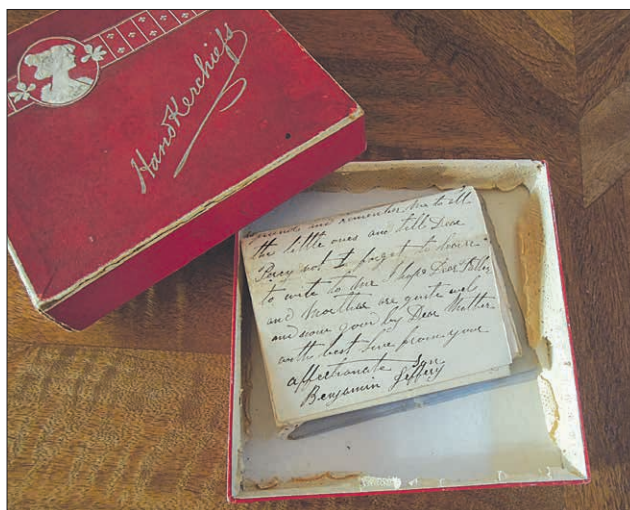 HandKerchiefs
and remember me to all
the little ones and tell Dear
Percy not I forget to
to write to me I hope Dear Father
and Mother are quite well
and now good by Dear Mother
with best love from your
affectionate Son
Benjamin Jeffery